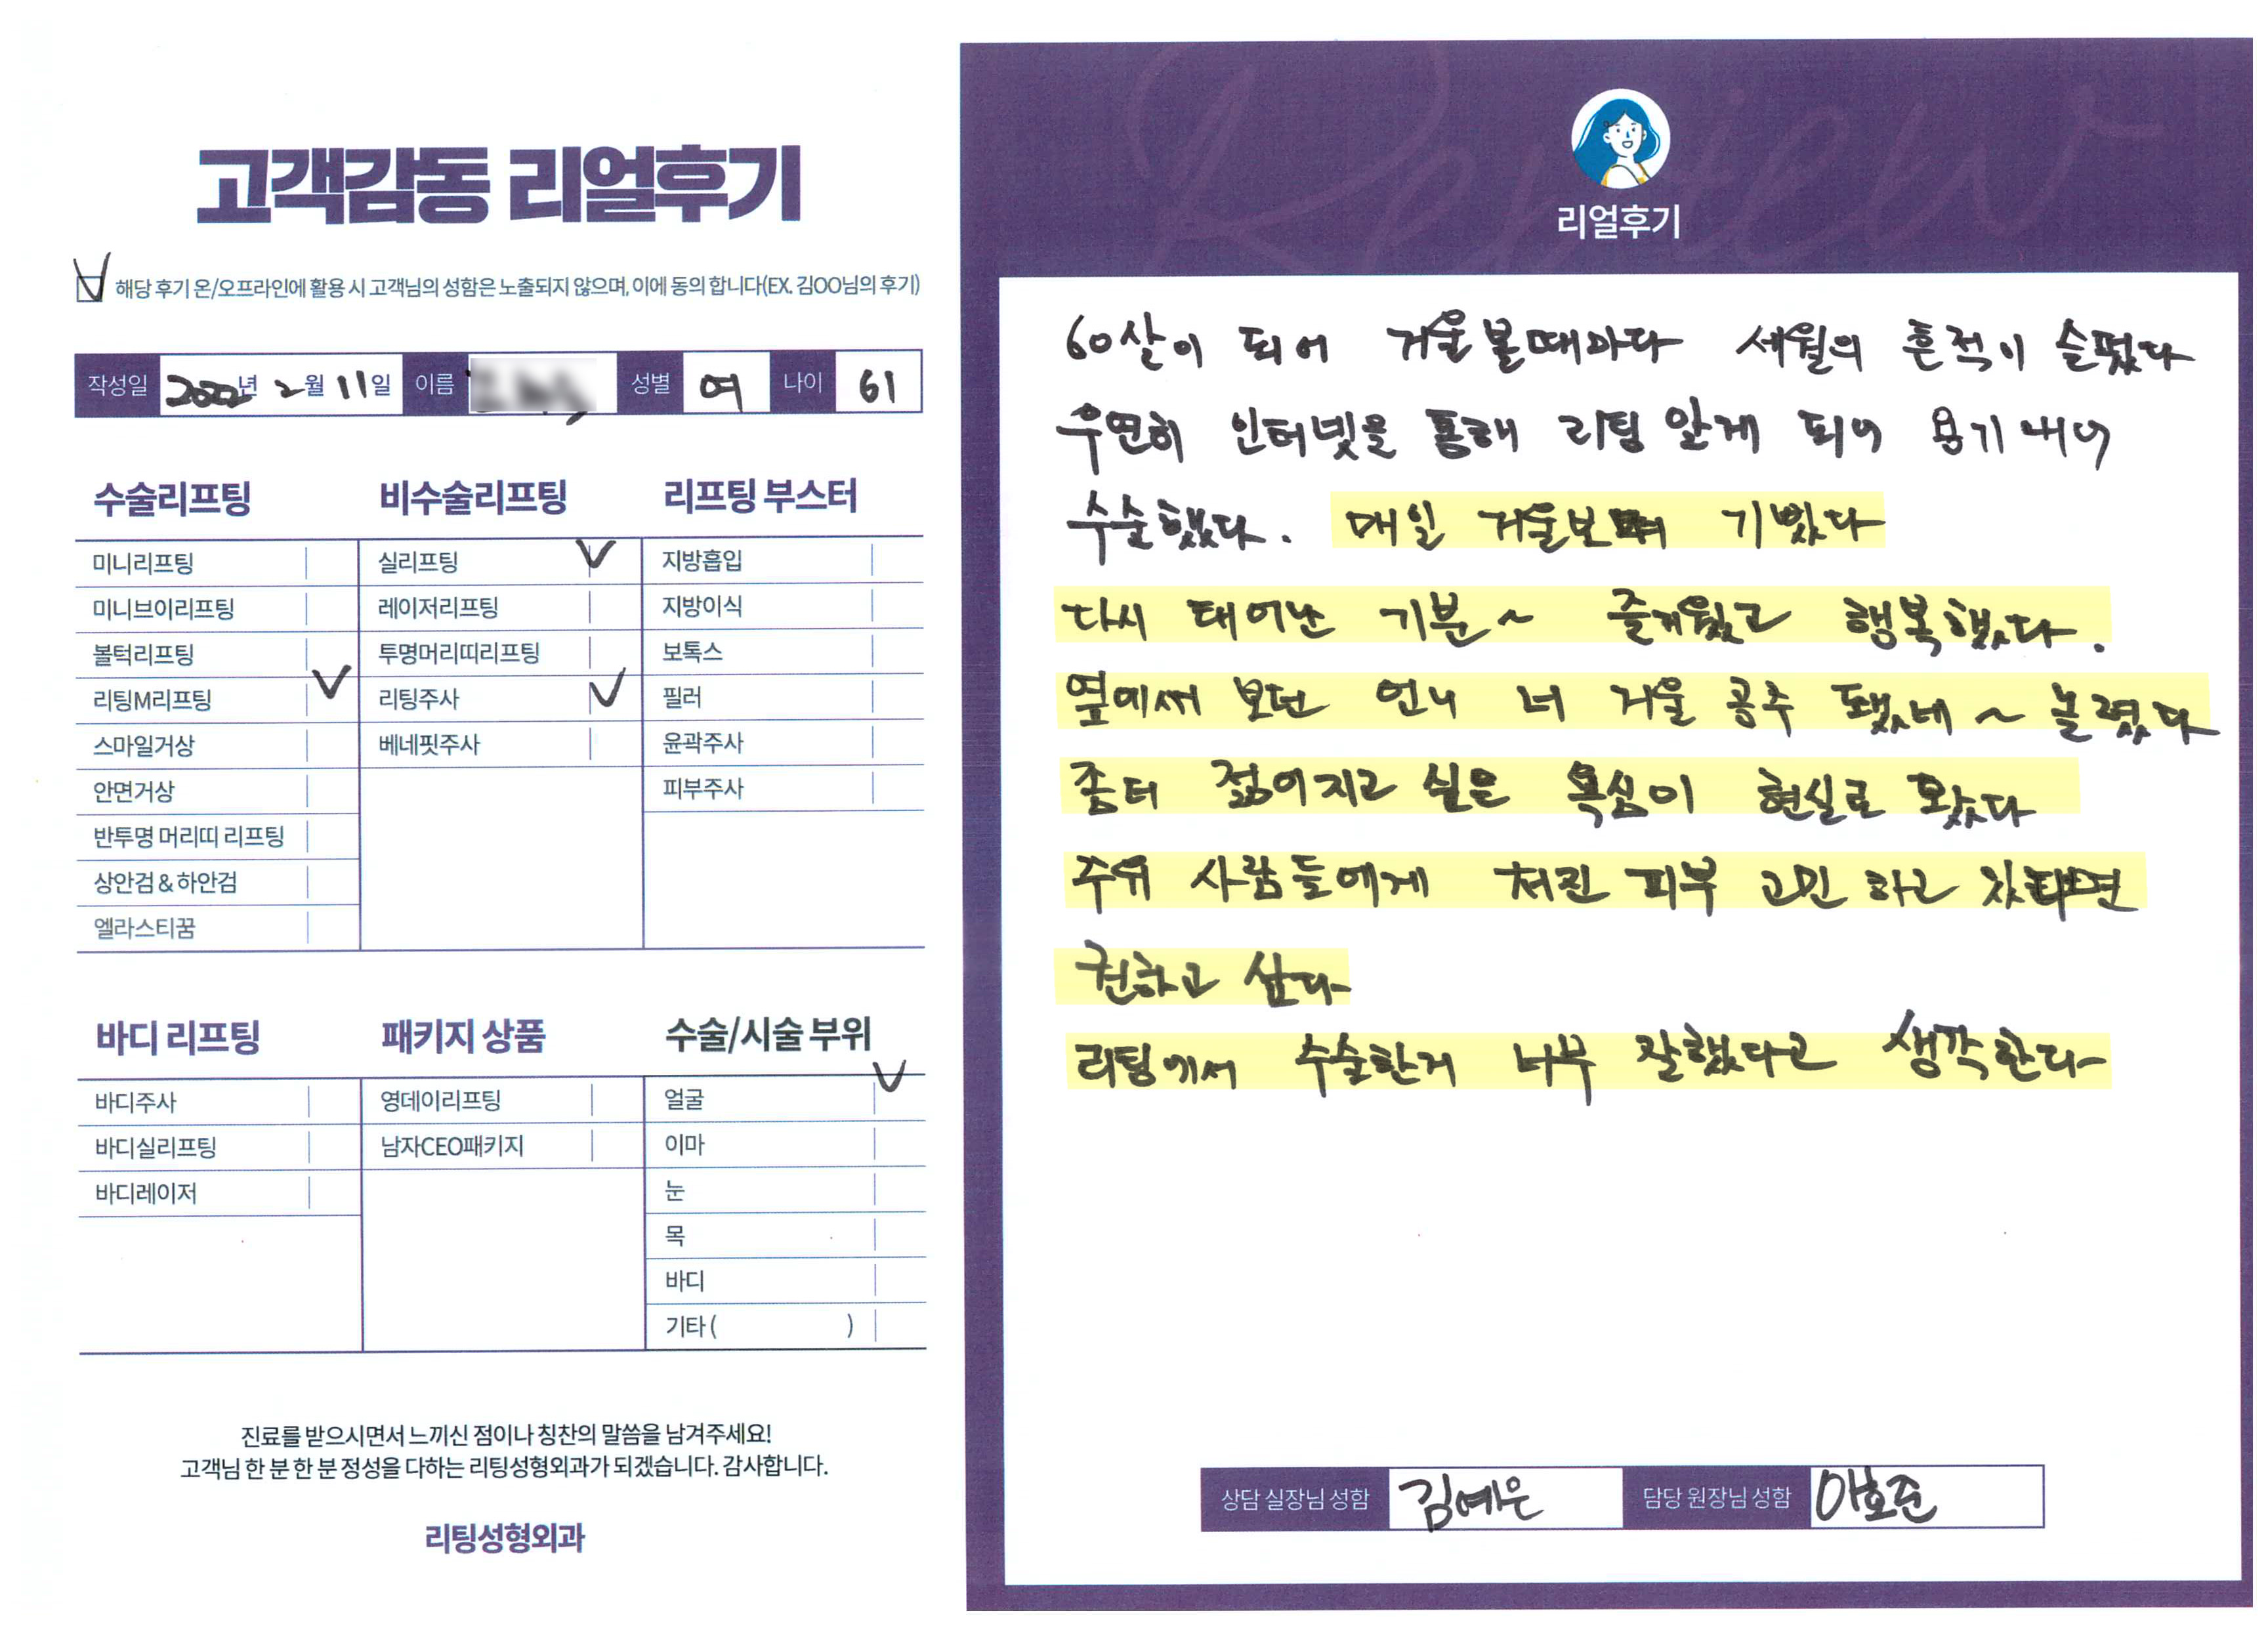 고객감동 리얼후기
해당 후기 온/오프라인에 활용 시 고객님의 성함은 노출되지 않으며, 이에 동의 합니다(EX. 김OO님의 후기)
작성일 2022년 2월 11일 이름 성별 여 나이 61
수술리프팅
미니리프팅
미니브이리프팅
볼턱리프팅
리팅M리프팅
스마일거상
안면거상
반투명 머리띠 리프팅
상안검 & 하안검
엘라스티꿈
비수술리프팅
실리프팅
레이저리프팅
투명머리띠리프팅
리팅주사
베네핏주사
리프팅 부스터
지방흡입
지방이식
보톡스
필러
윤곽주사
피부주사
바디 리프팅
바디주사
바디실리프팅
바디레이저
패키지 상품
영데이리프팅
남자CEO패키지
수술/시술 부위
얼굴
이마
눈
목
바디
기타 ( )
진료를 받으시면서 느끼신 점이나 칭찬의 말씀을 남겨주세요!
고객님 한 분 한 분 정성을 다하는 리팅성형외과가 되겠습니다. 감사합니다.
리팅성형외과
Review
리얼후기
60살이 되어 거울볼때마다 세월의 흔적이 슬펐다
우연히 인터넷을 통해 리팅 알게 되어 용기내어
수술했다. 매일 거울보며 기뻤다
다시 태어난 기분~ 즐거웠고 행복했다.
옆에서 보던 언니 너 거울 공주 됐네~ 놀렸다
좀더 젊어지고 싶은 욕심이 현실로 왔다
주위 사람들에게 처진 피부 고민 하고 있다면
권하고 싶다
리팅에서 수술한거 너무 잘했다고 생각한다
상담 실장님 성함 김예은 담당 원장님 성함